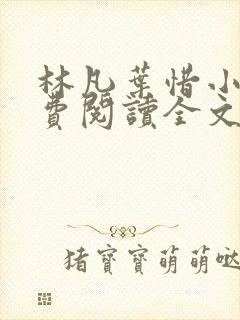 林凡葉惜小
費閱讀全文
猪寶寶萌萌噠